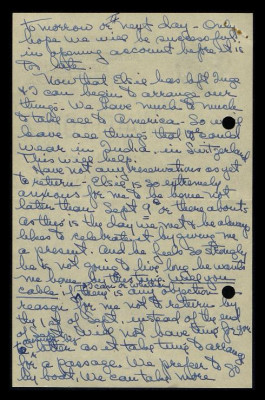 tomorrow or next day - Only
hope we will be successful
in opening account before it is
too late.
Now that Elsie has left Inge
& I can begin to arrange our
things. We have much to much
to take all to America - So will
leave all things that we could
wear in India - in Switzerland
This will help.
Have not any reservations as yet
to return - Elsie is so extremely
anxious for me to be home not
later than Sept or there abouts
as this is the day we met & he always
likes to celebrate it by giving me
a present. And he feels so strongly
he is not going to live long he wants
me home by this time. Will you
cable, if there is an objection
reason for me not to return by
the of Sept. instead of the end
of Sept. Will not have time for you
to as it takes time to arrange
for a passage. We prefer to go
by boat. We can take more